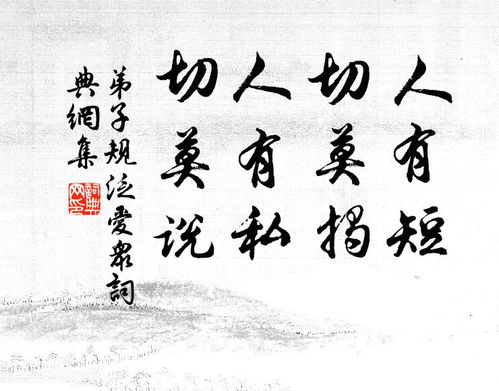 人有短
切莫揭
人有私
切莫说
弟子规泛爱众詞
典網集
詞典
网印